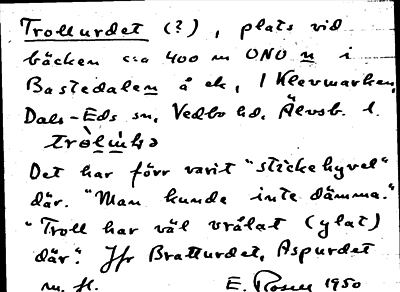 Trollurdet (?), plats vid
bäcken c:a 400 m ONO n i
Bastedalen å ek. 1 Klevmarken,
Dals-Eds sn, Vedbo hd, Älvsb. l.
Det har förr varit "stickehyvel"
där. "Man kunde inte dämma."
"Troll har väl vrålat (ylat)
där". Jfr Bratturdet, Aspurdet
m. fl. E. Rosell 1950